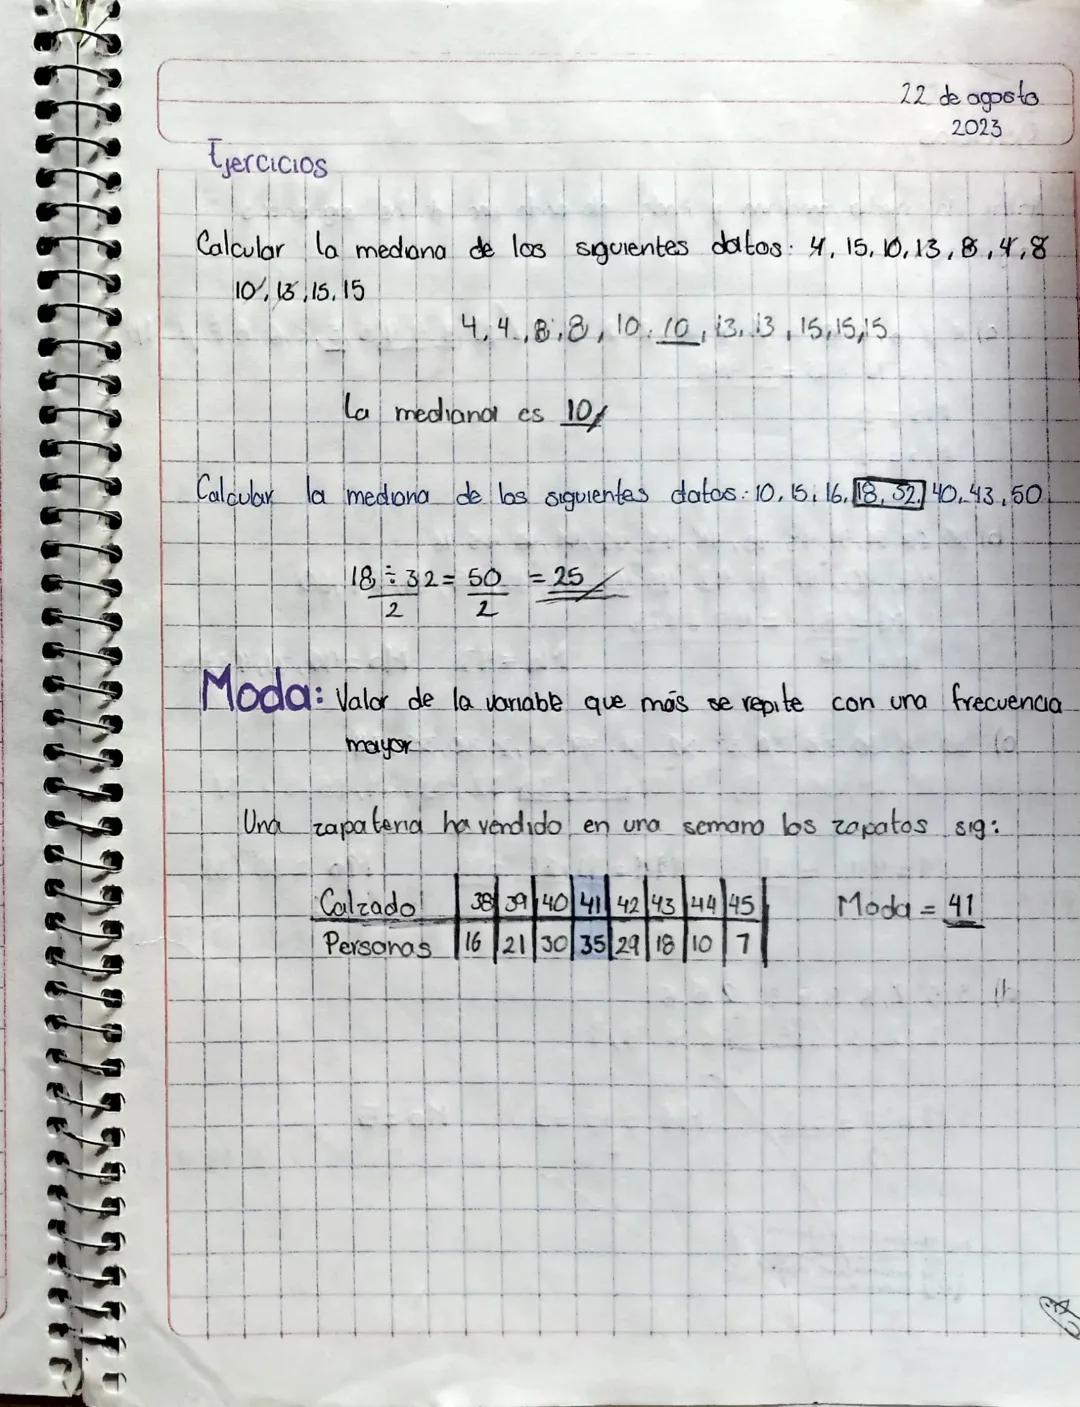 22 de agosto
2023
Ejercicios
Calcular la mediana de los siguientes datos: 4, 15, 10, 13, 8, 4, 8
10, 13, 15, 15
4, 4, 8, 8, 10, 10, 13, 13, 15, 15, 15
La mediana es 10
Calcular la mediana de los siguientes datos: 10, 15, 16, 18, 32, 40, 43, 50
18 ÷ 32 = 50 = 25
2 2
Moda: Valor de la variable que más se repite con una frecuencia
mayor
Una zapateria ha vendido en una semana los zapatos sig:
Calzado 38 39 40 41 42 43 44 45 Moda = 41
Personas 16 21 30 35 29 18 10 7